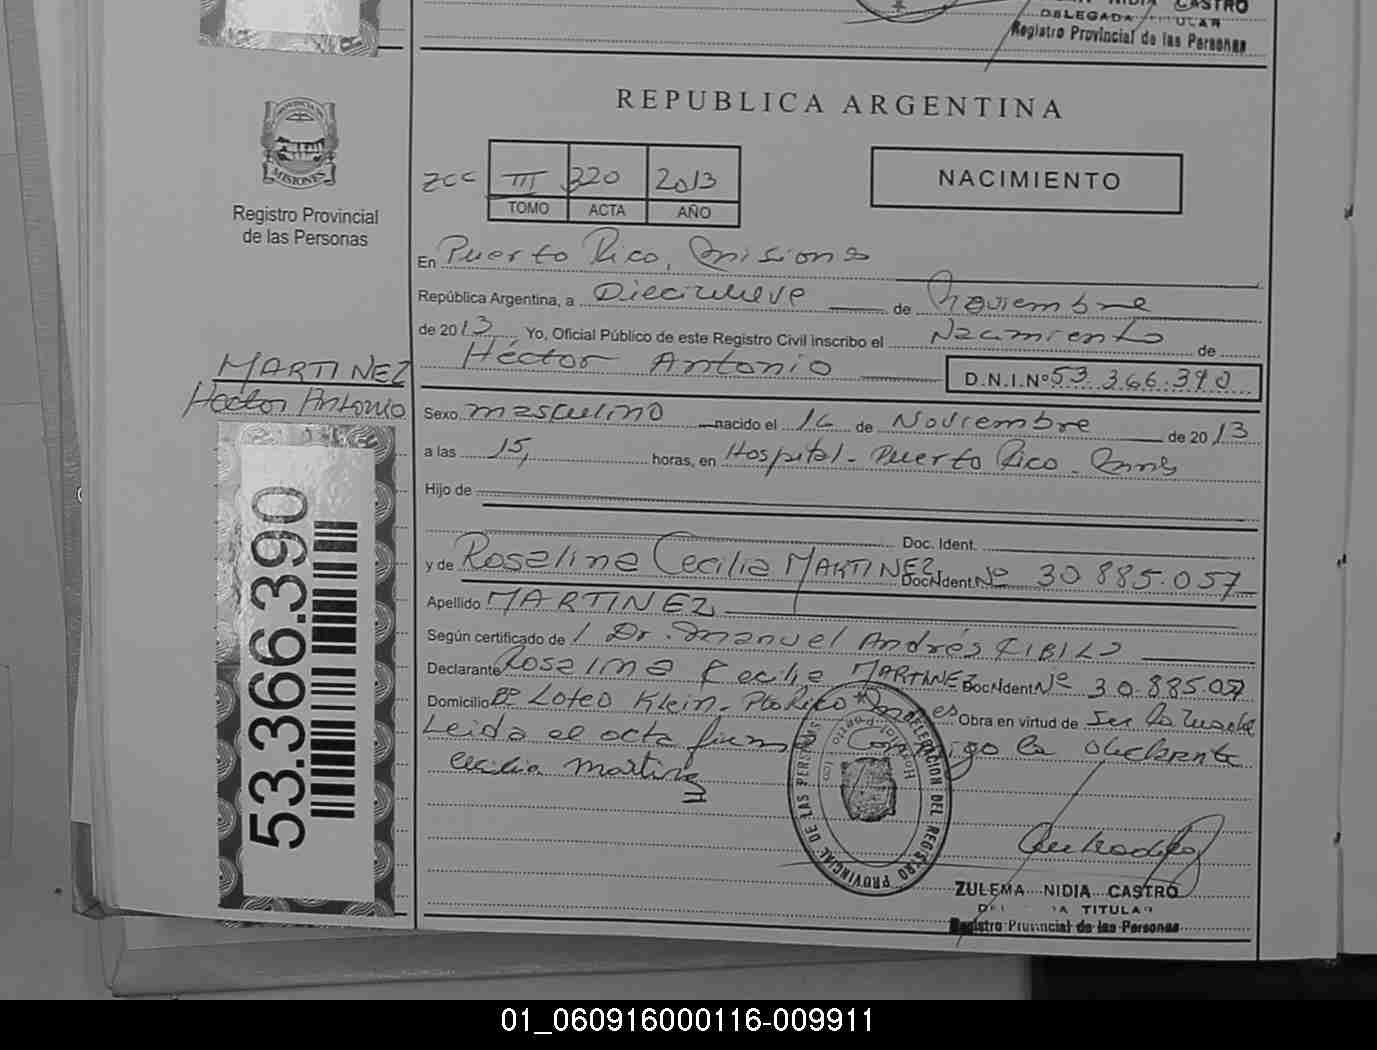 CASTRO
DELEGADA TITULAR
Registro Provincial de las Personas
REPUBLICA ARGENTINA
PROVINCIA DE
MISIONES
Registro Provincial
de las Personas
III 320 2013
TOMO ACTA AÑO
NACIMIENTO
En Puerto Rico, Misiones
República Argentina, a Diecinueve de Noviembre
de 2013 Yo, Oficial Público de este Registro Civil inscribo el Nacimiento de
Héctor Antonio D.N.I.Nº 53.366.390
MARTINEZ
Hector Antonio
Sexo masculino nacido el 16 de Noviembre de 2013
a las 15, horas, en Hospital - Puerto Rico - Mnes
Hijo de
Doc. Ident.
y de Roselina Cecilia MARTINEZ, Doc. Ident. Nº 30.885.057
Apellido MARTINEZ,
Según certificado de Dr. Manuel Andrés
Declarante Roselina Cecilia MARTINEZ Doc. Ident. Nº 30.885.057
Domicilio Bº Loteo Klein - Pto Rico Obra en virtud de
Leida el acta firma conmigo la declarante
Cecilia Martinez
53.366.390
DELEGACION DEL REGISTRO PROVINCIAL DE LAS PERSONAS
ZULEMA NIDIA CASTRO
TITULAR
Registro Provincial de las Personas
01_060916000116-009911